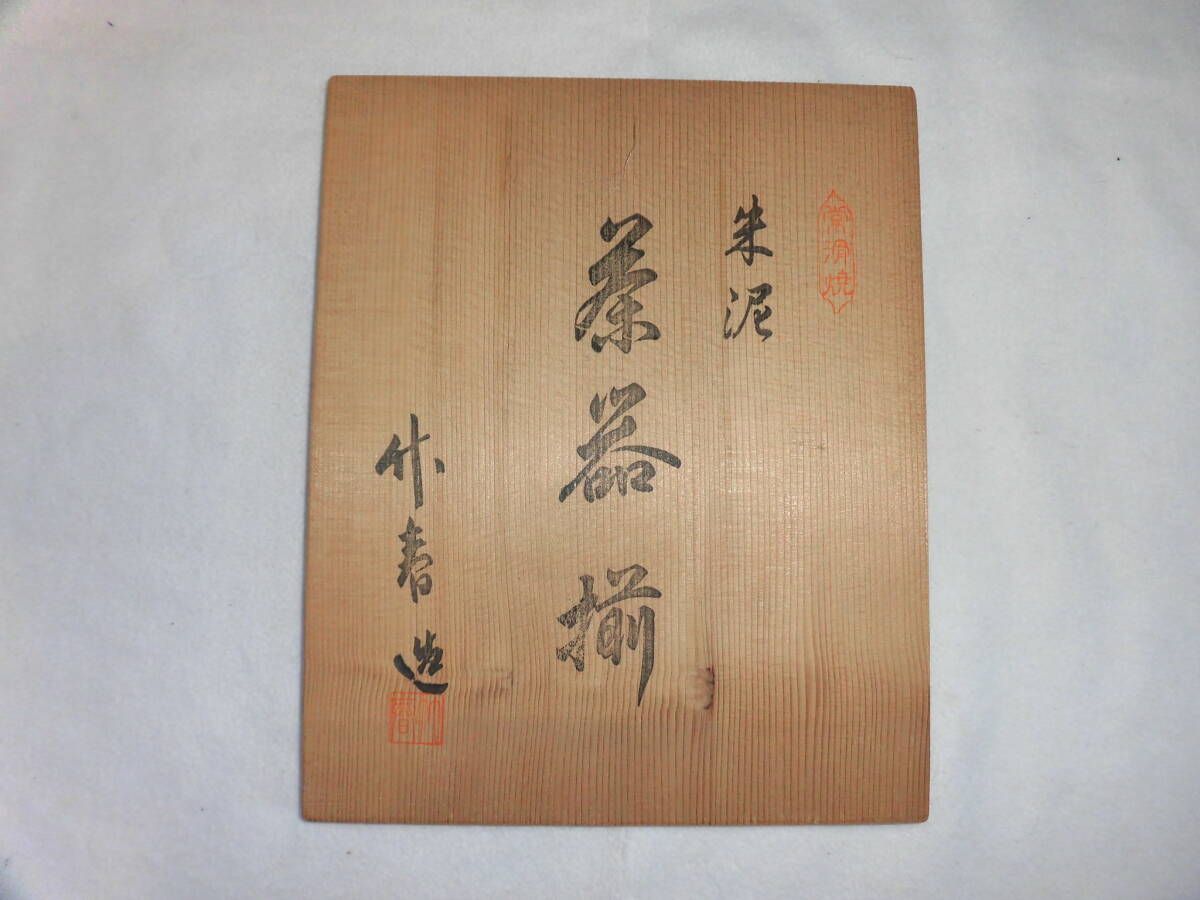 常滑焼
朱泥
茶器揃
竹春造
竹春